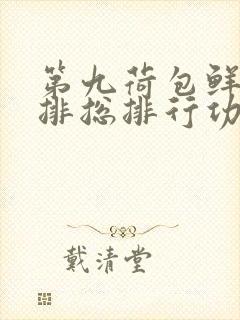 第九荷包鲜
排总排行功
戴清堂